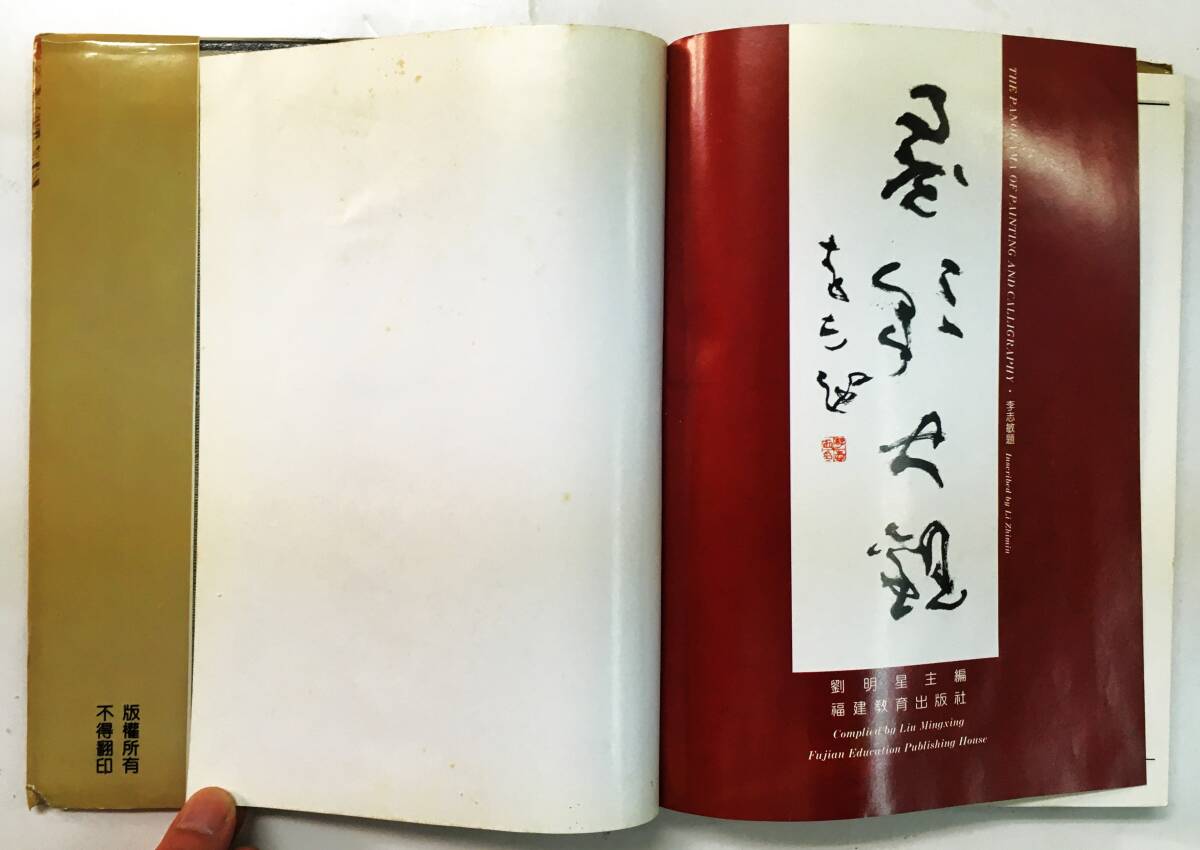 版權所有
不得翻印
墨彩大觀
李志敏
THE PANORAMA OF PAINTING AND CALLIGRAPHY · 李志敏題 Inscribed by Li Zhimin
劉明星主編
福建教育出版社
Complied by Liu Mingxing
Fujian Education Publishing House